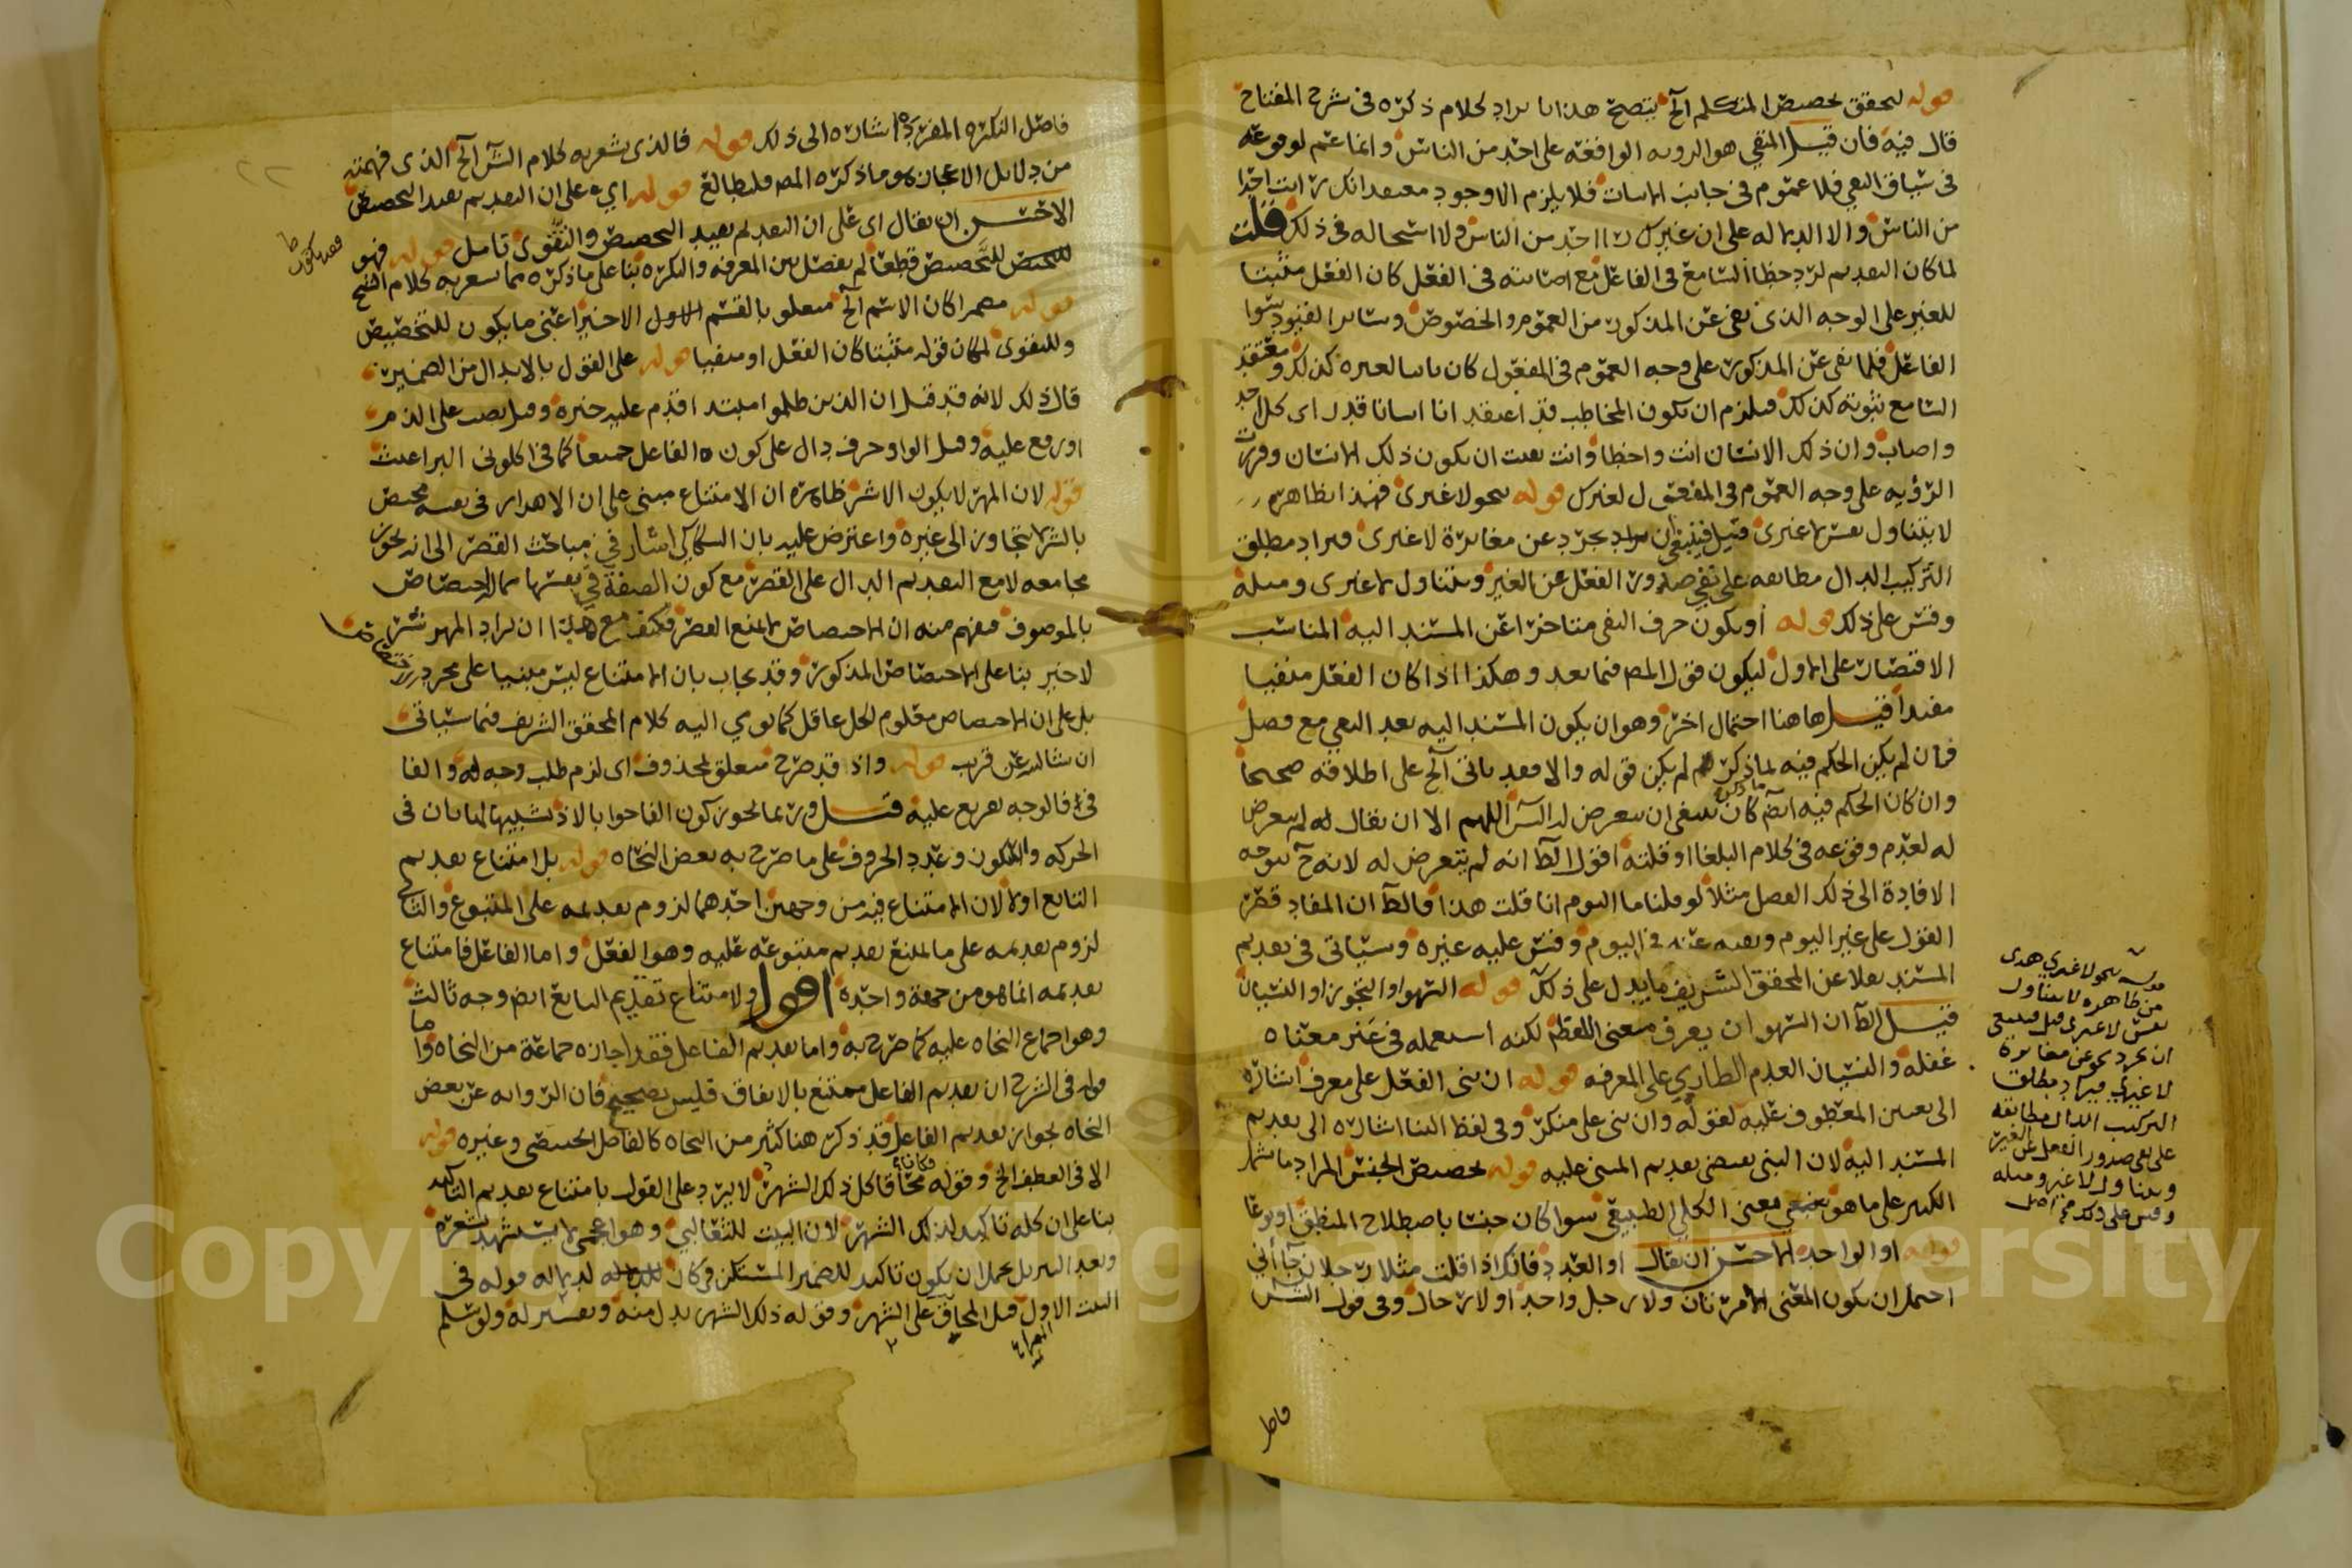 قوله لتحقق تخصيص المتكلم الخ يتضح هذا بايراد كلام ذكره في شرح المفتاح
قال فيه فان قيل المنفي هو الرويه الواقعة على احد من الناس وانما عم لوقوعه
في سياق النفي فلا عموم في جانب الاثبات فلا يلزم الا وجود معتقد انك رايت احدا
من الناس والا الدلاله على ان غيرك راا احد من الناس ولا استحاله في ذلك قلت
لما كان التقديم لرد خطا السامع في الفاعل مع اصابته في الفعل كان الفعل مثبتا
للغير على الوجه الذي نفي عن المذكور من العموم والخصوص وساير القيود سوا
الفاعل فلما نفي عن المذكور على وجه العموم في المفعول كان ثابتا لغيره كذلك ومعتقد
السامع ثبوته كذلك فيلزم ان يكون المخاطب قد اعتقد ان انسانا قد راى كل احد
واصاب وان ذلك الانسان انت واخطا وانت نفيت ان يكون ذلك الانسان وقررت
الرؤيه على وجه العموم في المفعول لغيرك قوله نحو لا غيرى فهذا بظاهره
لا يتناول نفس لا غيرى قيل فينبغي ان يراد مجرد عن مغايرة لا غيرى فيراد مطلق
التركيب الدال مطابقه على نفي صدور الفعل عن الغير ويتناول لا غيرى ومثله
وقس على ذلك قوله أو يكون حرف النفي متاخرا عن المسند اليه المناسب
الاقتصار على الاول ليكون قول المص فيما بعد وهكذا اذا كان الفعل منفيا
مفيدا قيل هاهنا احتمال اخر وهو ان يكون المسند اليه بعد النفي مع فصل
فان لم يكن الحكم فيه لما ذكر لم يكن قوله والا فقد ياتي الخ على اطلاقه صحيحا
وان كان الحكم فيه ايضا كان ينبغي ان يتعرض له الش اللهم الا ان يقال له لم يتعرض
له لعدم وقوعه في كلام البلغا او قلته اقول الظ انه لم يتعرض له لانه ح يتوجه
الافادة الى ذلك الفصل مثلا لو قلنا ما اليوم انا قلت هذا فالظ ان المفاد قصر
القول على غير اليوم ونفيه عنه في اليوم وقس عليه غيره وسياتي في تقديم
المسند نقلا عن المحقق الشريف ما يدل على ذلك قوله السهو او التجوز او النسيان
قيل الظ ان السهو ان يعرف معنى اللفظ لكنه استعمله في غير معناه
غفلة والنسيان العدم الطاري على المعرفه قوله ان بنى الفعل على معرف اشاره
الى تعيين المعطوف عليه لقوله وان بنى على منكر وفي لفظ البنا اشاره الى تقديم
المسند اليه لان البنى يقتضي تقديم المبنى عليه قوله تخصيص الجنس المراد ما يشمل
الكثير على ما هو معنى الكلي الطبيعي سوا كان جنسا باصطلاح المنطق او نوعا
قوله او الواحد الاحسن ان يقال او العدد فانك اذا قلت مثلا رجلان جاآني
احتمل ان يكون المعنى لا امراتان ولا رجل واحد او لا رجال وفي قول الش
فاصل
قوله نحو لا غيري هدى
من ظاهره لا يتناول
نفس لا غيرى قيل فينبغي
ان يجرد نحو عن مغايرة
لا غيري فيراد مطلق
التركيب الدال مطابقه
على نفي صدور الفعل عن الغير
ويتناول لا غير ومثله
وقس على ذلك صح اصل
فاصل النكره المفرده اشاره الى ذلك قوله فالذي يشعر به كلام الش الخ الذي فهمته
من دلايل الاعجاز هو ما ذكره المص فليطالع قوله اي على ان التقديم يفيد التخصيص
الاحسن ان يقال اى على ان التقديم يفيد التخصيص والتقوى تامل قوله فهو
للتخصيص قطعا لم يفصل بين المعرفه والنكره بنا على ما ذكره مما يشعر به كلام الشيخ
قوله مضمرا كان الاسم الخ متعلق بالقسم الاول الاخير اعني ما يكون للتخصيص
وللتقوى لمكان قوله مثبتا كان الفعل او منفيا قوله على القول بالابدال من الضمير
قال ذلك لانه قد قيل ان الذين ظلموا مبتدا قدم عليه خبره وقيل نصب على الذم
او رفع عليه وقيل الواو حرف دال على كون الفاعل جمعا كما في اكلوني البراغيث
قوله لان المهر لا يكون الا شر ظاهره ان الامتناع مبني على ان الاهرار في نفسه مختص
بالشر لا يتجاوز الى غيره واعترض عليه بان السكاكي اشار في مباحث القصر الى انه يجوز
مجامعه لا مع التقديم الدال على القصر مع كون الصفة في نفسها مما الاختصاص
بالموصوف فيفهم منه ان الاختصاص لا يمنع القصر فكيف مع هذا ان يراد المهر شر
لا خير بنا على الاختصاص المذكور وقد يجاب بان الامتناع ليس مبنيا على مجرد
بل على ان الاختصاص معلوم لكل عاقل كما يومي اليه كلام المحقق الشريف فيما سياتي
ان شا الله عن قريب قوله واذ قد صرح متعلق بمحذوف اى لزم طلب وجه له والفا
في فالوجه تفريع عليه قيل وربما يجوز كون الفا جوابا لاذ تشبيها لها بان في
الحركه والسكون وعدد الحروف على ما صرح به بعض النحاه قوله بل امتناع تقديم
التابع اولى لان الامتناع فيه من وجهين احدهما لزوم تقديمه على المتبوع والثاني
لزوم تقديمه على ما يمنع تقديم متبوعه عليه وهو الفعل واما الفاعل فامتناع
تقديمه انما هو من جهة واحدة اقول ولامتناع تقديم التابع ايض وجه ثالث
وهو اجماع النحاه عليه كما صرح به واما تقديم الفاعل فقد اجازه جماعة من النحاه واما
قوله في الشرح ان تقديم الفاعل ممتنع بالاتفاق فليس بصحيح فان الروايه عن بعض
النحاه بجواز تقديم الفاعل قد ذكرها كثير من النحاه كالفاضل الحفصى وغيره قوله
الا في العطف الخ وقوله محاقا كل ذلك الشهر لا يرد على القول بامتناع تقديم التاكيد
بنا على ان كله تاكيد لذلك الشهر لان البيت للثعالبي وهو اعجمي لا يستشهد بشعره
وبعد التنزيل يحتمل ان يكون تاكيد للضمير المستكن في كان لدلاله قوله في
البيت الاول قبل المحاق على الشهر وقوله ذلك الشهر بدل منه وتفسير له ولو سلم